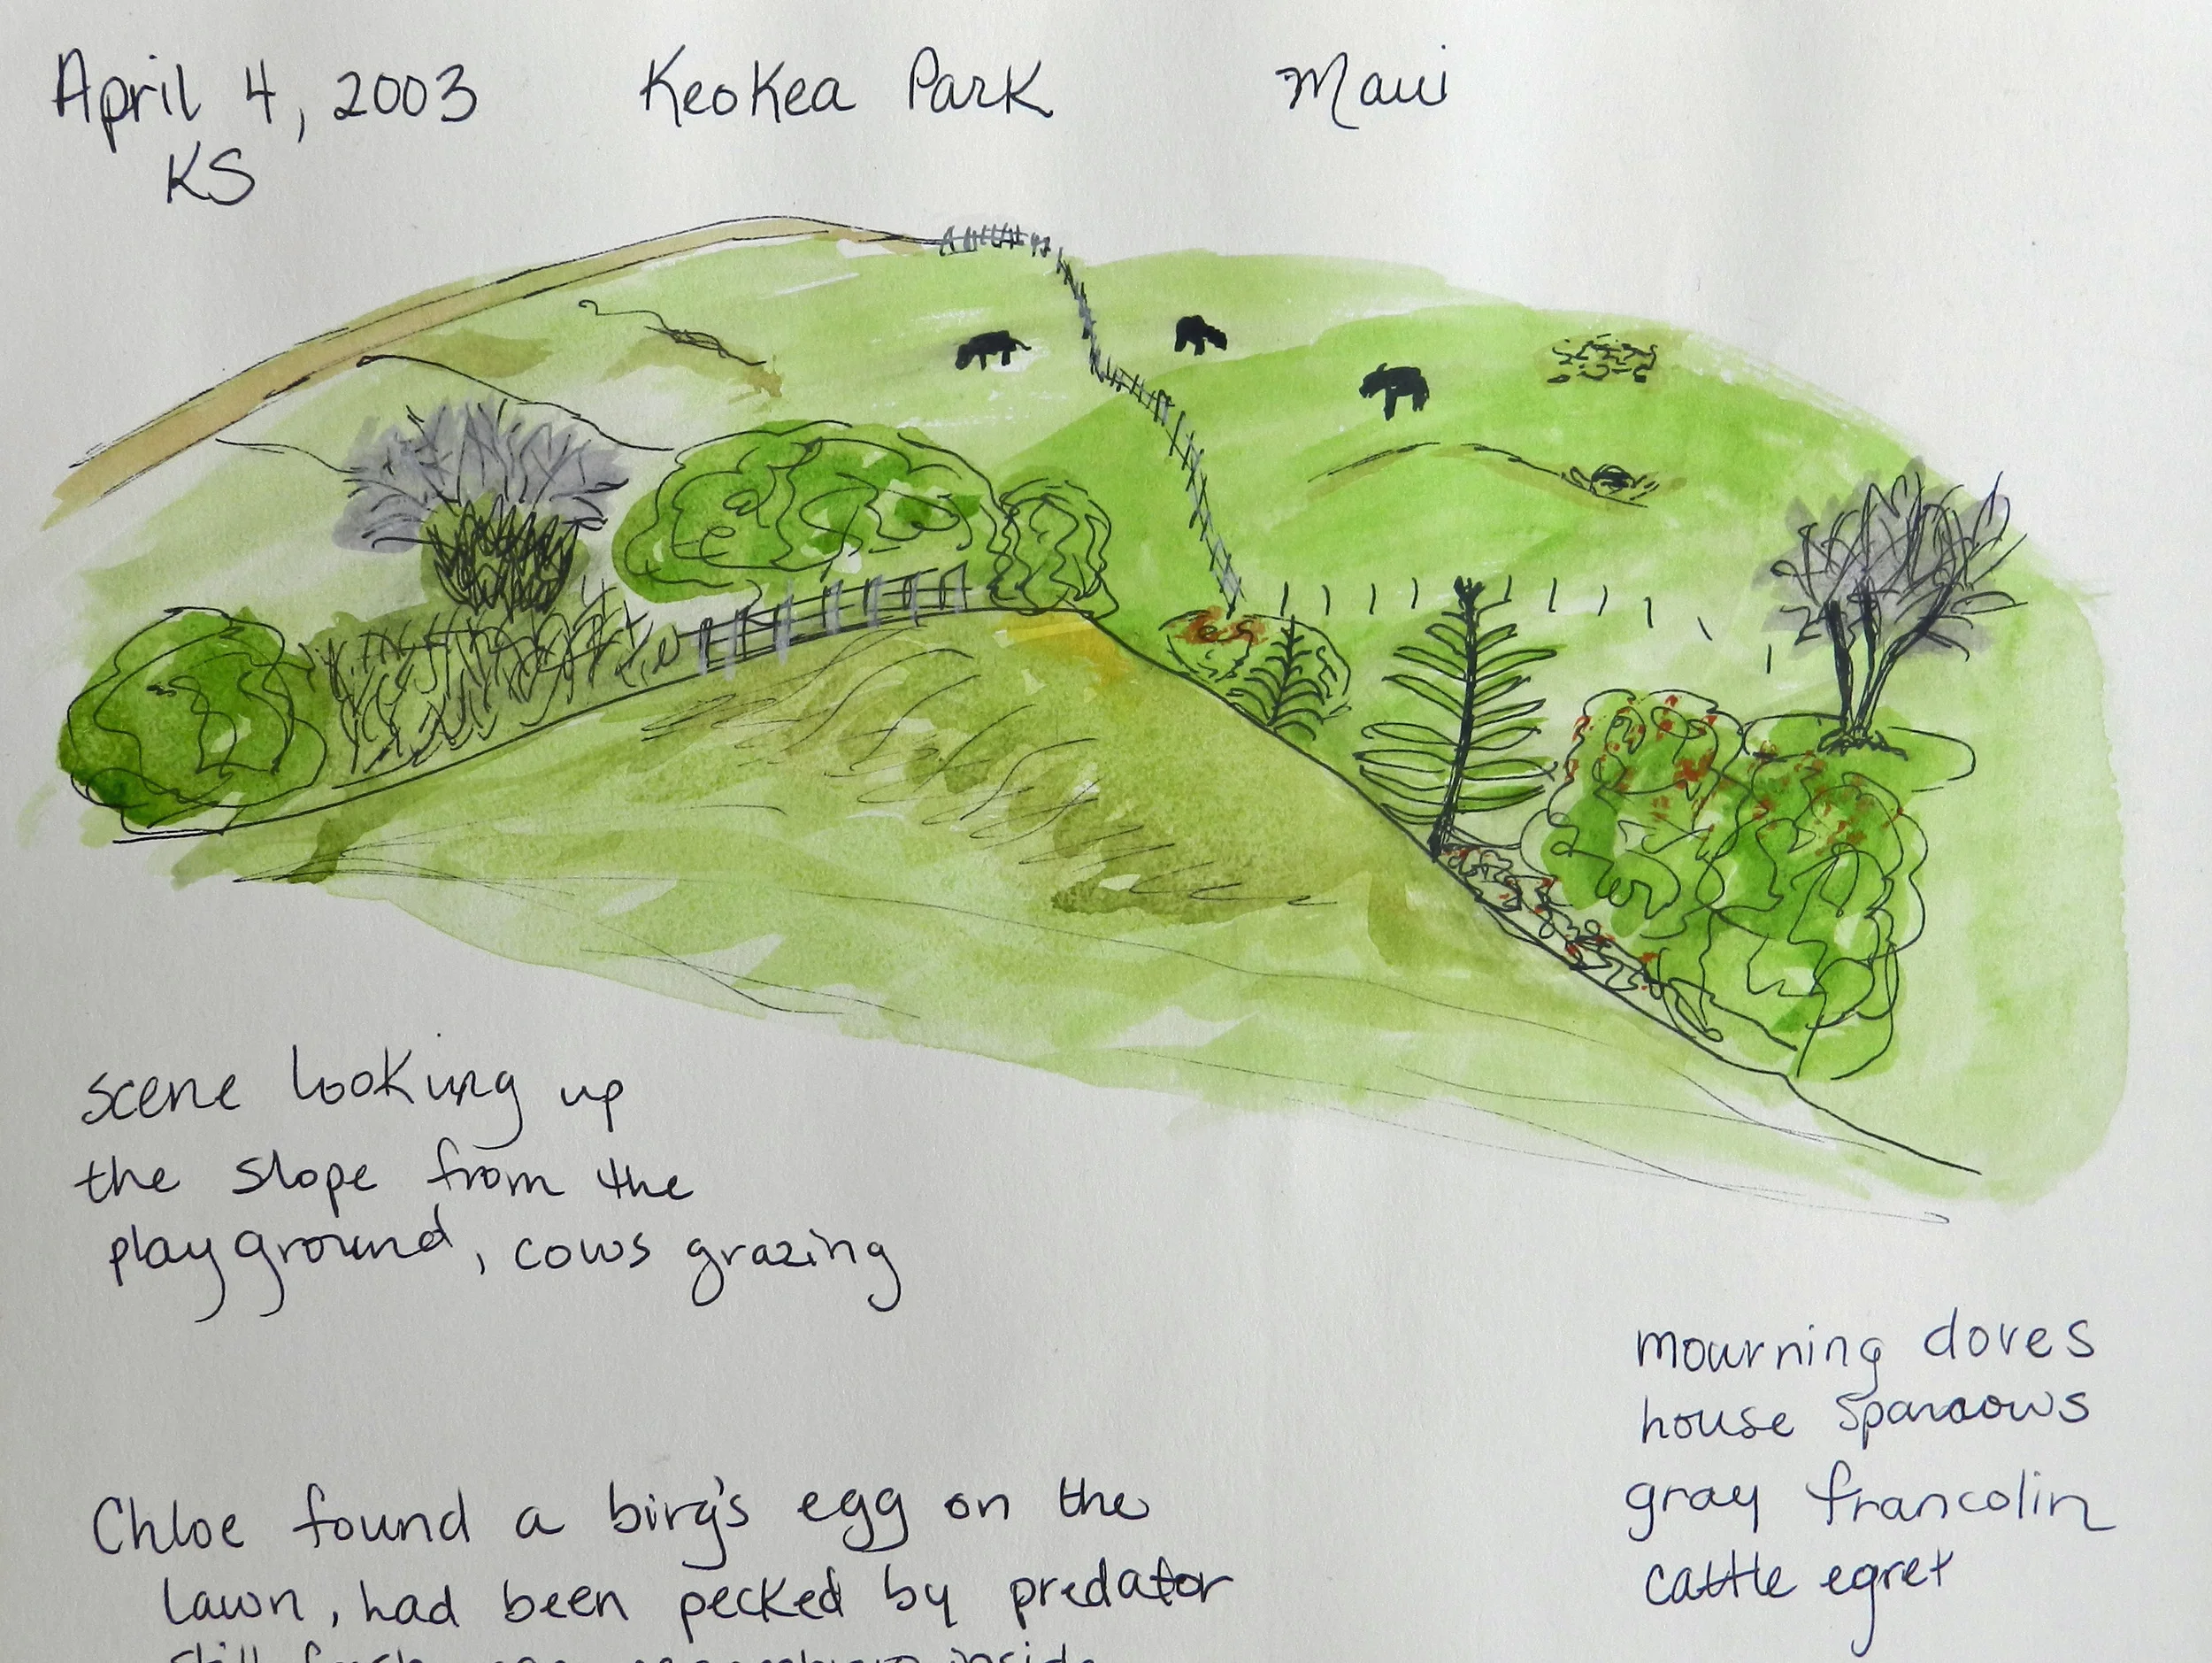 April 4, 2003 Keokea Park Maui
KS
scene looking up
the slope from the
playground, cows grazing
mourning doves
house sparrows
gray francolin
cattle egret
Chloe found a birg's egg on the
lawn, had been pecked by predator
still fresh inside